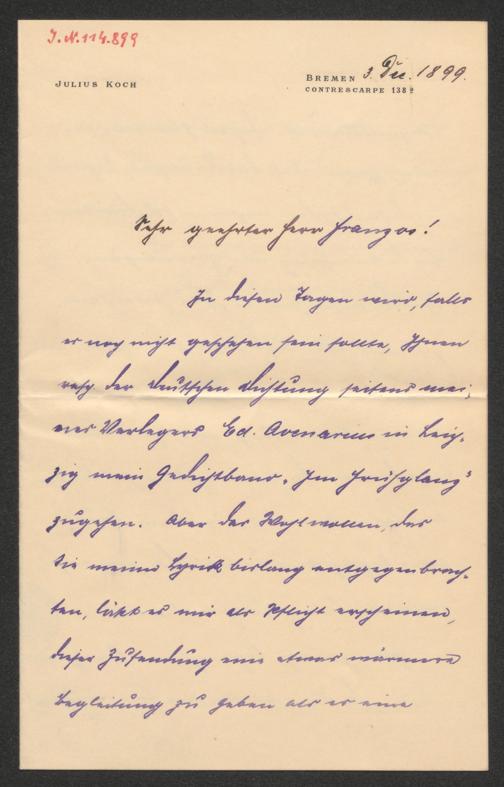 J.N. 114.899
JULIUS KOCH
BREMEN 3. Dec. 1899.
CONTRESCARPE 138
Sehr geehrter Herr Franzos!
In diesen Tagen wird, falls
es noch nicht geschehen sein sollte, Ihnen
resp. der Deutschen Dichtung seitens mei-
nes Verlegers Ed. Avenarius in Leip-
zig mein Gedichtband „Im Frühglanz“
zugehen. Aber das Wohlwollen, das
Sie meiner Lyrik bislang entgegenbrach-
ten, läßt es mir als Pflicht erscheinen,
dieser Zusendung eine etwas wärmere
Begleitung zu geben als es eine